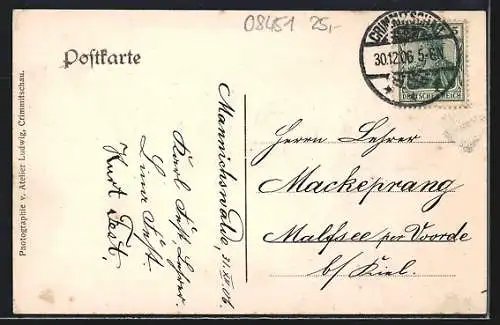 08451 25,-
Postkarte
CRIMMITSCHAU
30.12.06. 5-6N
DEUTSCHES REICH
5
Photographie v. Atelier Ludwig, Crimmitschau.
Mannichswalde, 31.XII.06.
Karl Fast, Lehrer
Lina Fast.
Kurt Fast.
Herrn Lehrer
Mackeprang
Molfsee per Voorde
b/ Kiel.